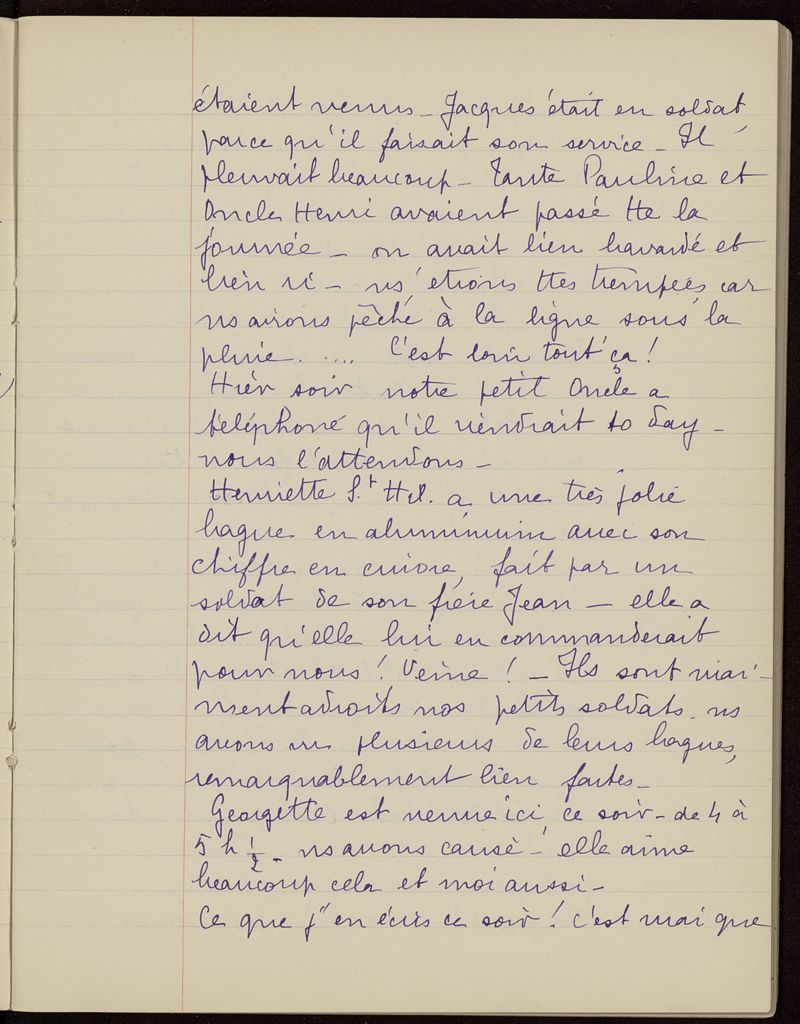 étaient venus - Jacques était en soldat,
parce qu'il faisait son service - Il
pleuvait beaucoup - Tante Pauline et
Oncle Henri avaient passé tte la
journée - on avait bien bavardé et
bien ri - ns étions ttes trempées car
ns avions pêché à la ligne sous la
pluie. .... C'est loin tout ça !
Hier soir notre petit Oncle a
téléphoné qu'il viendrait to day -
nous l'attendons -
Henriette St Hil. a une très jolie
bague en aluminium avec son
chiffre en cuivre, fait par un
soldat de son frère Jean - elle a
dit qu'elle lui en commanderait
pour nous ! Veine ! - Ils sont vrai-
ment adroits nos petits soldats. ns
avons vu plusieurs de leurs bagues,
remarquablement bien faites -
Georgette est venue ici ce soir - de 4 à
5 h 1/2 - ns avons causé - elle aime
beaucoup cela et moi aussi -
Ce que j'en écris ce soir ! c'est vrai que